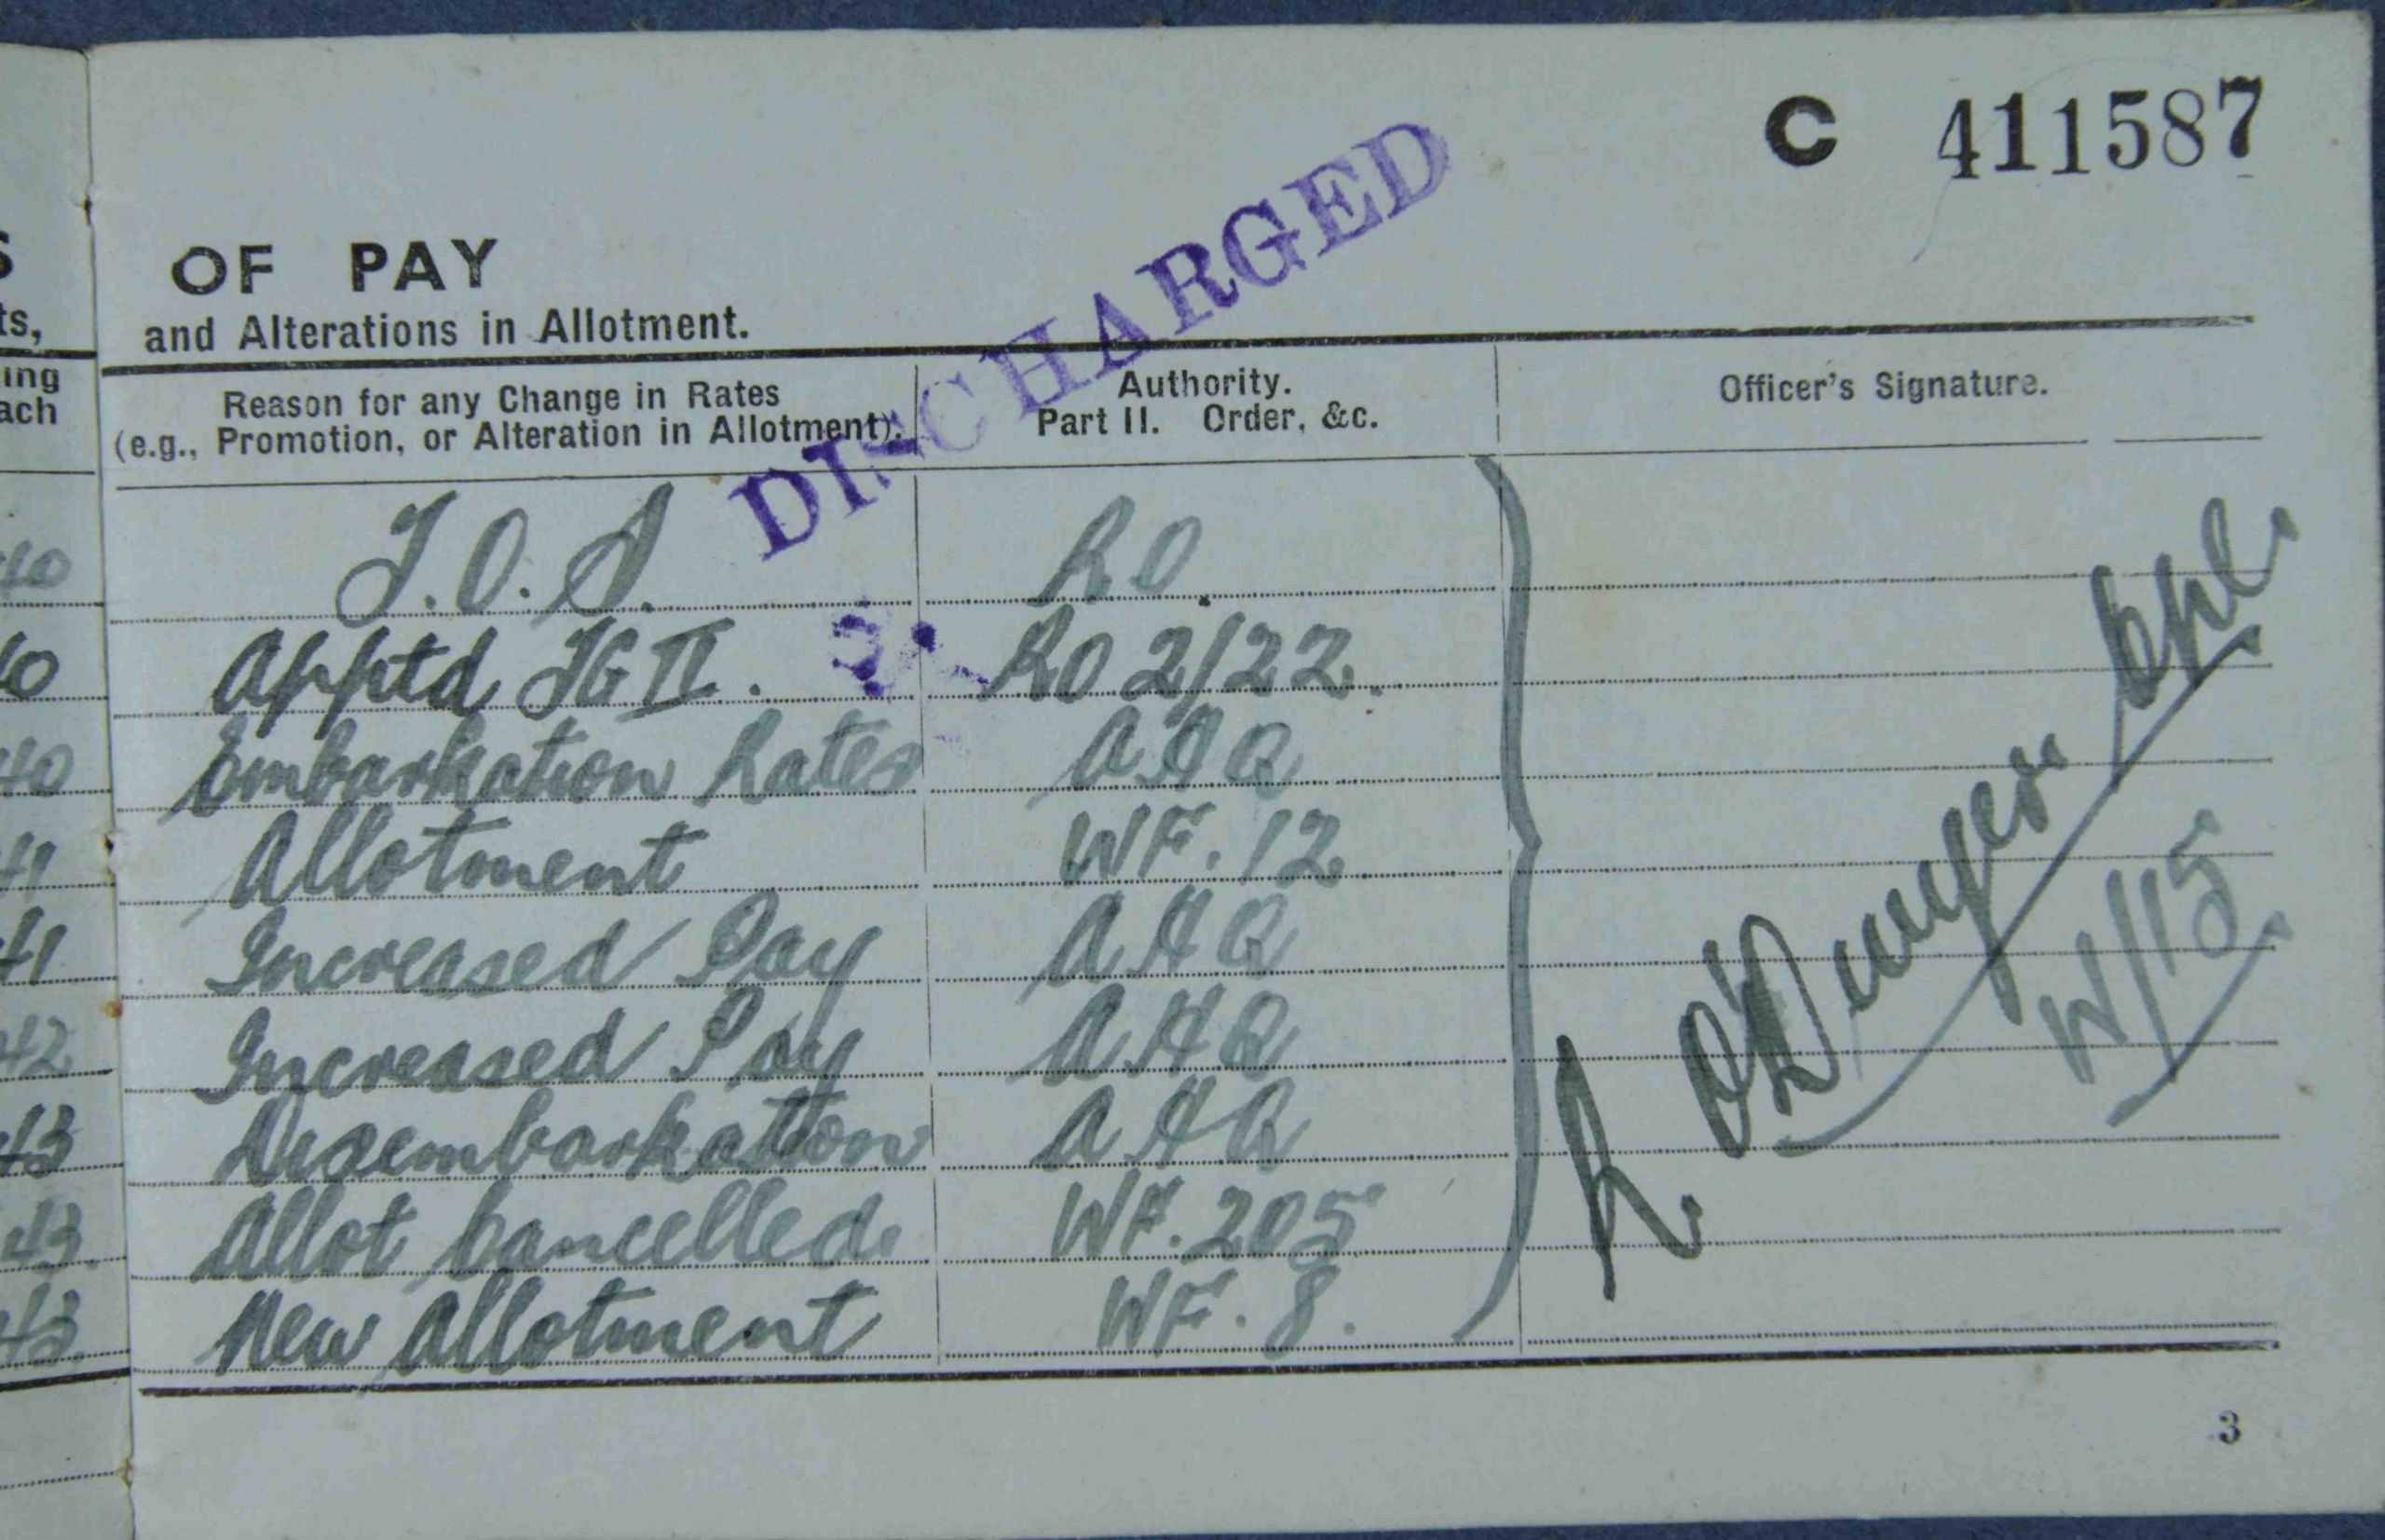 C 411587
DISCHARGED
S OF PAY
ts, and Alterations in Allotment.
ing
ach
Reason for any Change in Rates
(e.g., Promotion, or Alteration in Allotment).
Authority.
Part II. Order, &c.
Officer's Signature.
40 T.O.S. RO
40 Apptd TG II. RO 2/22.
40 Embarkation Rates AHQ
41 Allotment WF.12
41 Increased Pay AHQ
42 Increased Pay AHQ
43 Disembarkation AHQ
43 Allot Cancelled. WF.205
43 New Allotment WF.8.
Cpl.
W/15
3